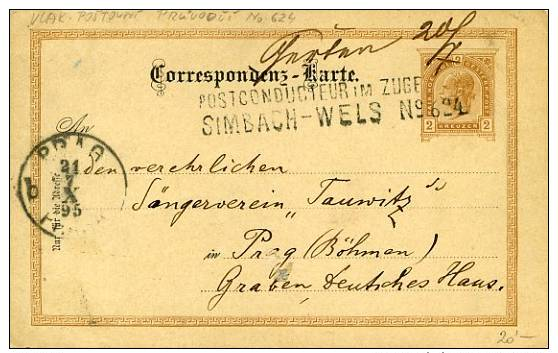 VLAK. POŠTOVNÍ PRŮVODČÍ No. 624
20/X
Correspondenz-Karte.
POSTCONDUCTEUR IM ZUGE
SIMBACH-WELS No 624
2 KREUZER 2
An
PRAG
21
X
95
b
Nur für die Adresse
den verehrlichen
Sängerverein „Tauwitz“
in Prag (Böhmen)
Graben, Deutsches Haus.
20.-